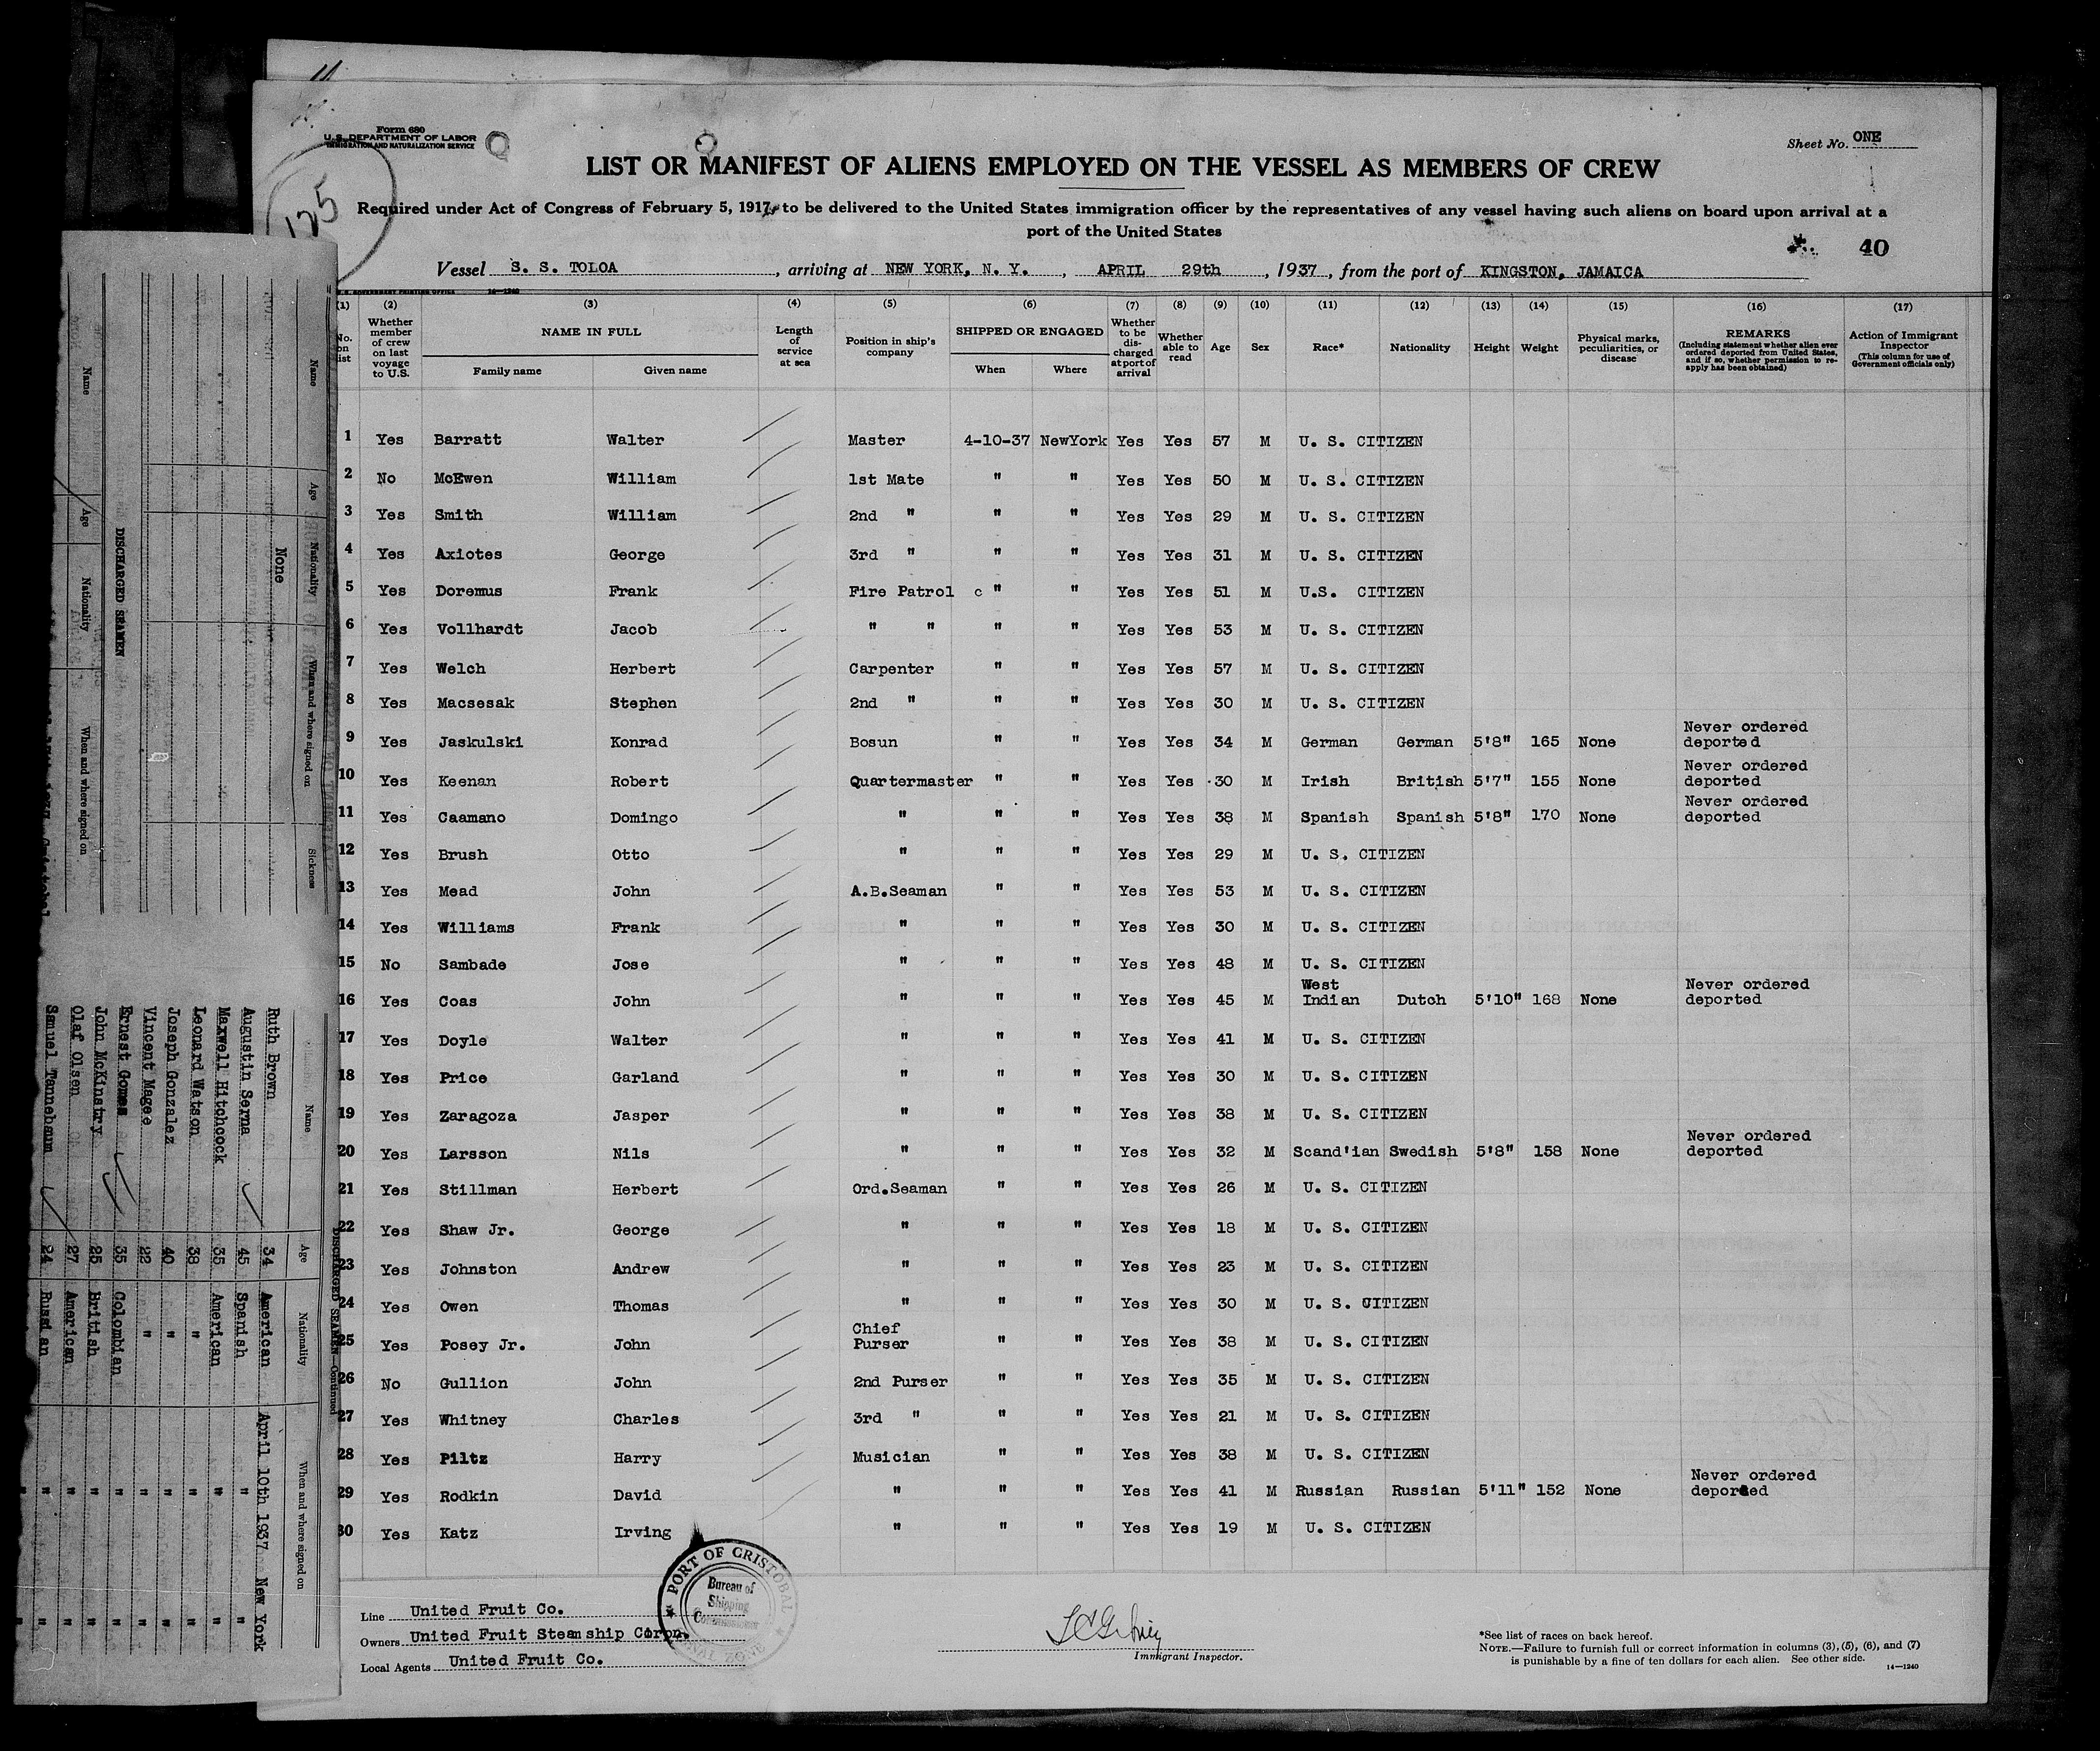 Form 680
U. S. DEPARTMENT OF LABOR
IMMIGRATION AND NATURALIZATION SERVICE
Sheet No. ONE
LIST OR MANIFEST OF ALIENS EMPLOYED ON THE VESSEL AS MEMBERS OF CREW
125
Required under Act of Congress of February 5, 1917, to be delivered to the United States immigration officer by the representatives of any vessel having such aliens on board upon arrival at a
port of the United States
40
Vessel S. S. TOLOA, arriving at NEW YORK, N. Y., APRIL 29th, 1937, from the port of KINGSTON, JAMAICA
(1) (2) (3) (4) (5) (6) (7) (8) (9) (10) (11) (12) (13) (14) (15) (16) (17)
No. on list Whether member of crew on last voyage to U.S. NAME IN FULL Family name Given name Length of service at sea Position in ship's company SHIPPED OR ENGAGED When Where Whether to be discharged at port of arrival Whether able to read Age Sex Race* Nationality Height Weight Physical marks, peculiarities, or disease REMARKS (Including statement whether alien ever ordered deported from United States, and if so, whether permission to re-apply has been obtained) Action of Immigrant Inspector (This column for use of Government officials only)
1 Yes Barratt Walter Master 4-10-37 NewYork Yes Yes 57 M U. S. CITIZEN
2 No McEwen William 1st Mate " " Yes Yes 50 M U. S. CITIZEN
3 Yes Smith William 2nd " " " Yes Yes 29 M U. S. CITIZEN
4 Yes Axiotes George 3rd " " " Yes Yes 31 M U. S. CITIZEN
5 Yes Doremus Frank Fire Patrol c " " Yes Yes 51 M U.S. CITIZEN
6 Yes Vollhardt Jacob " " " " Yes Yes 53 M U. S. CITIZEN
7 Yes Welch Herbert Carpenter " " Yes Yes 57 M U. S. CITIZEN
8 Yes Macsesak Stephen 2nd " " " Yes Yes 30 M U. S. CITIZEN
9 Yes Jaskulski Konrad Bosun " " Yes Yes 34 M German German 5'8" 165 None Never ordered deported
10 Yes Keenan Robert Quartermaster " " Yes Yes 30 M Irish British 5'7" 155 None Never ordered deported
11 Yes Caamano Domingo " " " Yes Yes 38 M Spanish Spanish 5'8" 170 None Never ordered deported
12 Yes Brush Otto " " " Yes Yes 29 M U. S. CITIZEN
13 Yes Mead John A.B.Seaman " " Yes Yes 53 M U. S. CITIZEN
14 Yes Williams Frank " " " Yes Yes 30 M U. S. CITIZEN
15 No Sambade Jose " " " Yes Yes 48 M U. S. CITIZEN
16 Yes Coas John " " " Yes Yes 45 M West Indian Dutch 5'10" 168 None Never ordered deported
17 Yes Doyle Walter " " " Yes Yes 41 M U. S. CITIZEN
18 Yes Price Garland " " " Yes Yes 30 M U. S. CITIZEN
19 Yes Zaragoza Jasper " " " Yes Yes 38 M U. S. CITIZEN
20 Yes Larsson Nils " " " Yes Yes 32 M Scand'ian Swedish 5'8" 158 None Never ordered deported
21 Yes Stillman Herbert Ord.Seaman " " Yes Yes 26 M U. S. CITIZEN
22 Yes Shaw Jr. George " " " Yes Yes 18 M U. S. CITIZEN
23 Yes Johnston Andrew " " " Yes Yes 23 M U. S. CITIZEN
24 Yes Owen Thomas " " " Yes Yes 30 M U. S. CITIZEN
25 Yes Posey Jr. John Chief Purser " " Yes Yes 38 M U. S. CITIZEN
26 No Gullion John 2nd Purser " " Yes Yes 35 M U. S. CITIZEN
27 Yes Whitney Charles 3rd " " " Yes Yes 21 M U. S. CITIZEN
28 Yes Piltz Harry Musician " " Yes Yes 38 M U. S. CITIZEN
29 Yes Rodkin David " " " Yes Yes 41 M Russian Russian 5'11" 152 None Never ordered deported
30 Yes Katz Irving " " " Yes Yes 19 M U. S. CITIZEN
PORT OF CRISTOBAL
Bureau of
Shipping
Line United Fruit Co.
Owners United Fruit Steamship Corpn.
Local Agents United Fruit Co.
Immigrant Inspector.
*See list of races on back hereof.
NOTE.—Failure to furnish full or correct information in columns (3), (5), (6), and (7)
is punishable by a fine of ten dollars for each alien. See other side.
14—1240
Name Age Nationality When and where signed on Sickness
None
DISCHARGED SEAMEN
Name Age Nationality When and where signed on
DISCHARGED SEAMEN—Continued
Name Age Nationality When and where signed on
Ruth Brown 34 American April 10th 1937 New York
Augustin Serna 45 Spanish " "
Maxwell Hitchcock 35 American " "
Leonard Watson 38 " " "
Joseph Gonzalez 40 " " "
Vincent Magee 22 " " "
Ernest Gomes 35 Colombian " "
John McKinstry 25 British " "
Olaf Olsen 27 American " "
Samuel Tannebaum 24 Russian " "